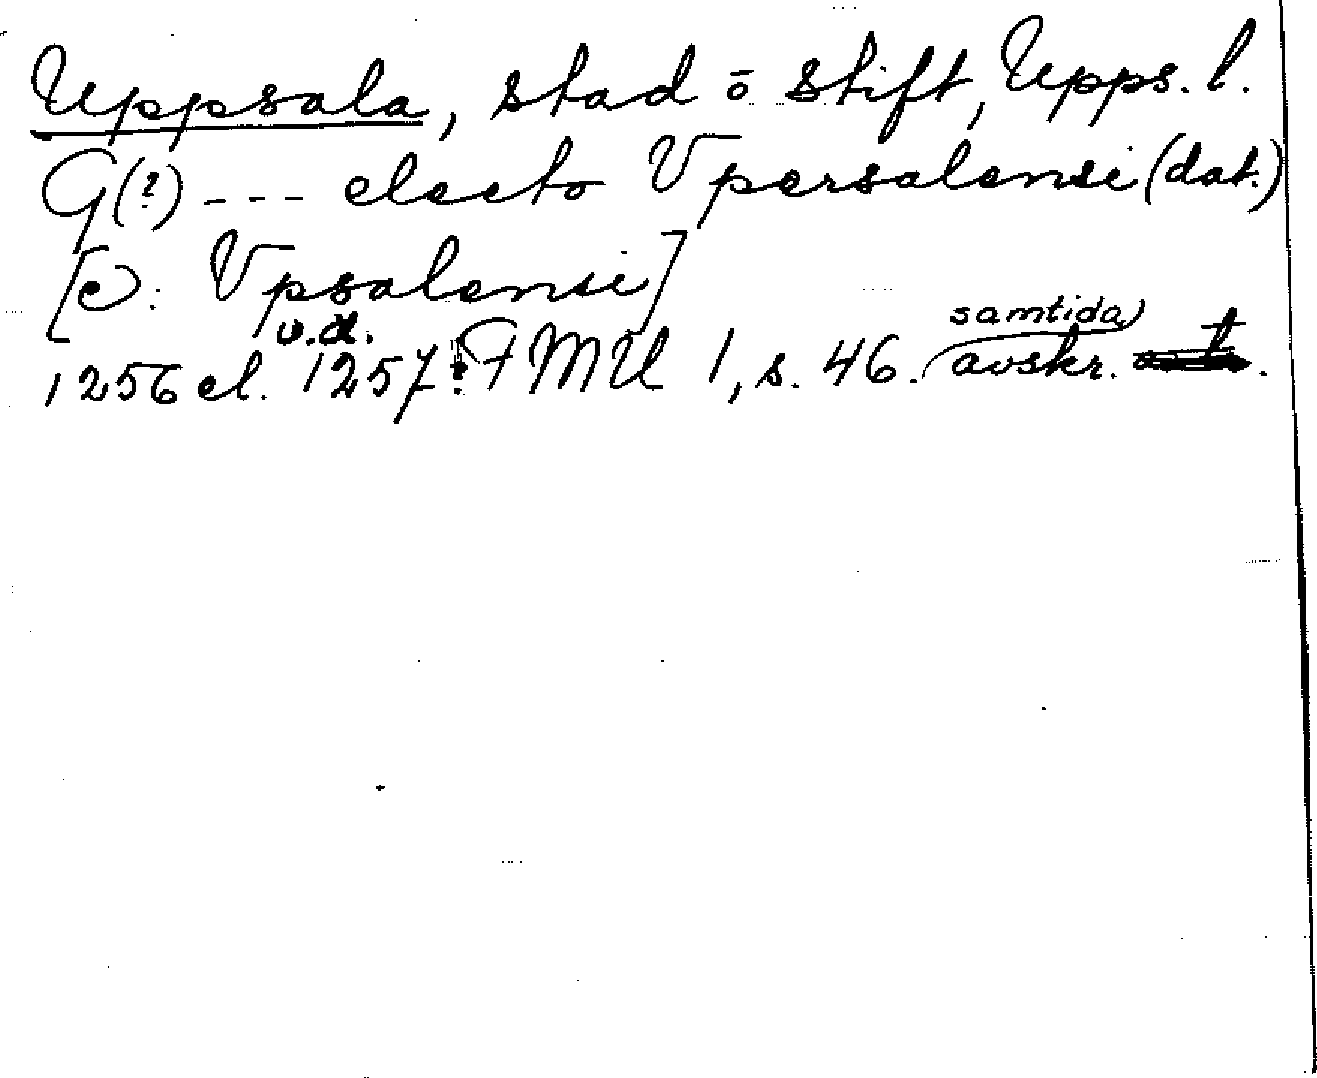 Uppsala, stad o stift, Upps. l.
G(?) --- electo Vpersalensi (dat.)
[ɔ: Vpsalensi]
u.d. samtida
1256 el. 1257: FMU 1, s. 46. avskr. t.